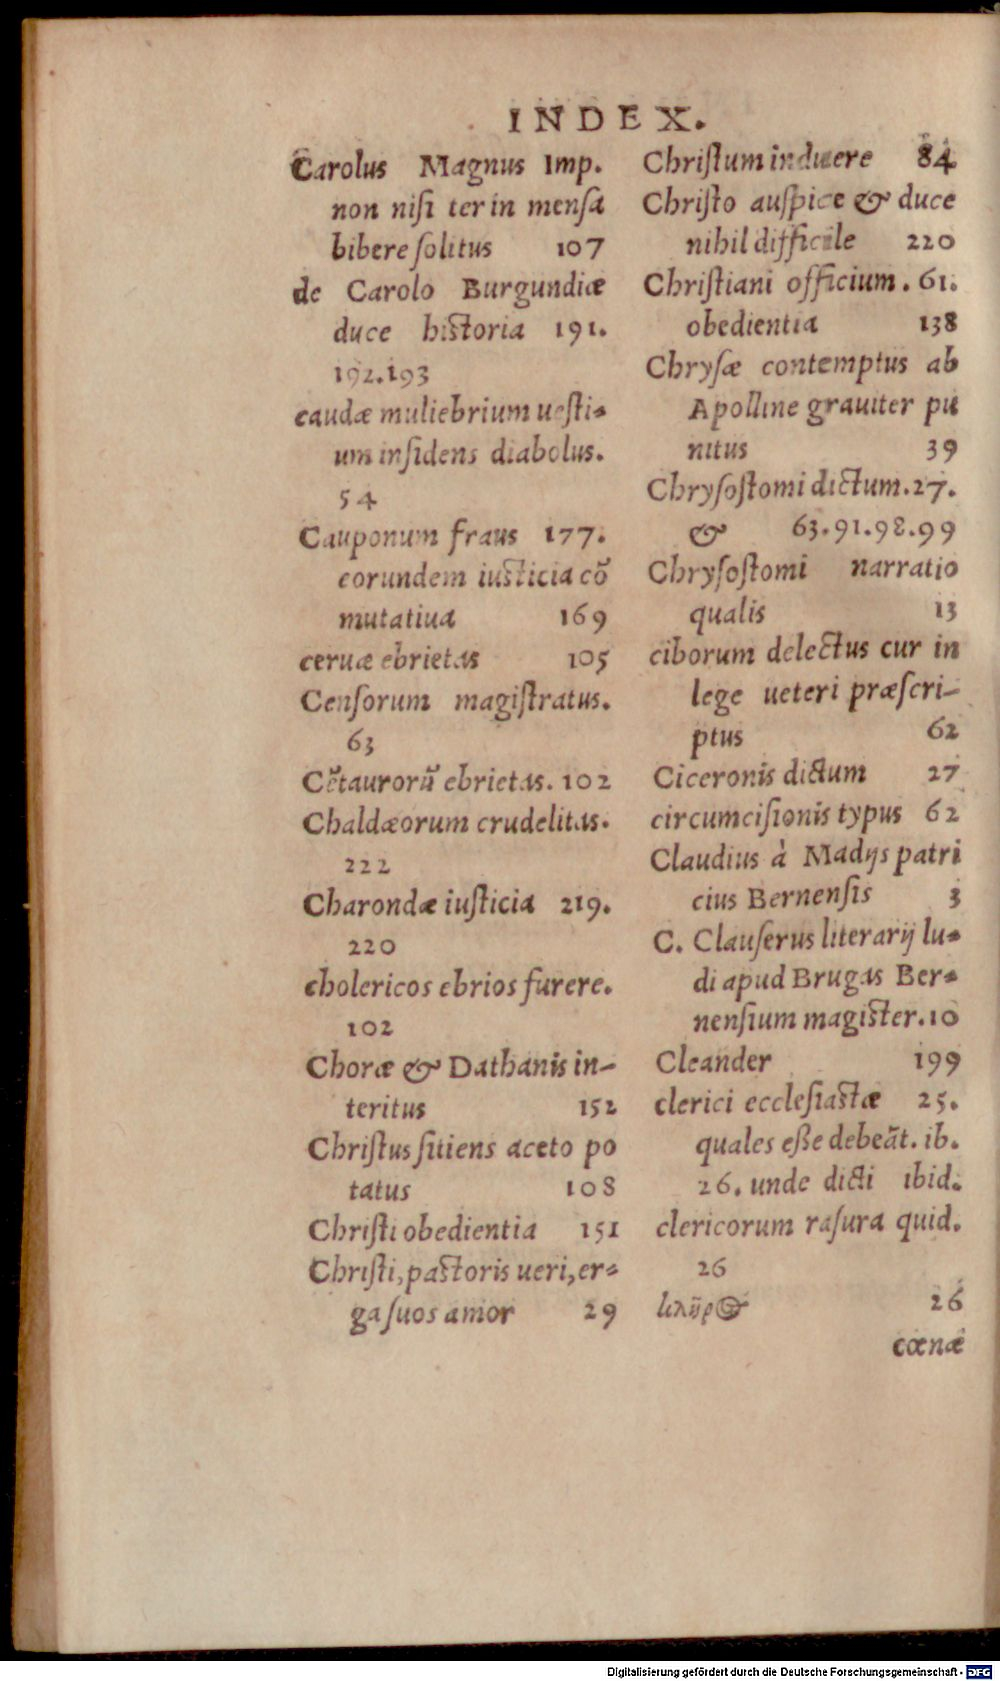 INDEX.
Carolus Magnus Imp.
non niſi ter in menſa
bibere ſolitus 107
de Carolo Burgundiæ
duce historia 191.
192.193
caudæ muliebrium ueſti-
um inſidens diabolus.
54
Cauponum fraus 177.
eorundem iusticia cõ
mutatiua 169
ceruæ ebrietas 105
Cenſorum magiſtratus.
63
Cẽtaurorũ ebrietas. 102
Chaldæorum crudelitas.
222
Charondæ iuſticia 219.
220
cholericos ebrios furere.
102
Choræ & Dathanis in-
teritus 152
Chriſtus ſitiens aceto po
tatus 108
Chriſti obedientia 151
Chriſti, pastoris ueri, er-
ga ſuos amor 29
Chriſtum induere 84
Chriſto auſpice & duce
nihil difficile 220
Chriſtiani officium. 61.
obedientia 138
Chryſæ contemptus ab
Apolline grauiter pu
nitus 39
Chryſoſtomi dictum. 27.
& 63.91.98.99
Chryſoſtomi narratio
qualis 13
ciborum delectus cur in
lege ueteri præſcri-
ptus 62
Ciceronis dictum 27
circumciſionis typus 62
Claudius à Madijs patri
cius Bernenſis 3
C. Clauſerus literarij lu-
di apud Brugas Ber-
nenſium magister. 10
Cleander 199
clerici eccleſiastæ 25.
quales eße debeãt. ib.
26. unde dicti ibid.
clericorum raſura quid.
26
26
cœnæ
Digitalisierung gefördert durch die Deutsche Forschungsgemeinschaft - DFG